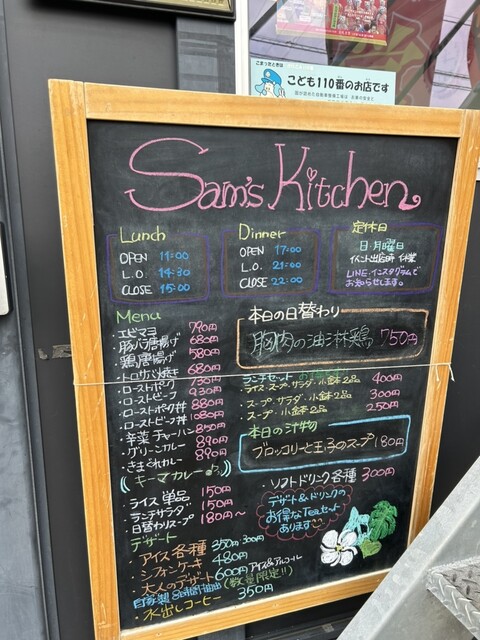 こまったときは
こども110番のお店です
Sam's Kitchen
Lunch
OPEN 11:00
L.O. 14:30
CLOSE 15:00
Dinner
OPEN 17:00
L.O. 21:00
CLOSE 22:00
定休日
日・月曜日
イベント出店時 休業
LINE・インスタグラムで
お知らせします。
Menu
・エビマヨ 790円
・豚バラ唐揚げ 680円
・鶏唐揚げ 580円
・トロサバ焼き 680円
・ローストポーク 730円
・ローストビーフ 930円
・ローストポーク丼 880円
・ローストビーフ丼 1080円
・辛菜チャーハン 850円
・グリーンカレー 890円
・きまぐれカレー 890円
((キーマカレー))
・ライス 単品 150円
・ランチサラダ 150円
・日替わりスープ 180円〜
デザート
・アイス各種 350円・300円
・シフォンケーキ 480円
・大人のデザート 600円 アイス&アルコール
(数量限定!!)
自家製 8時間抽出
・水出しコーヒー 350円
本日の日替わり
胸肉の油淋鶏 750円
ランチセット
・ライス・スープ・サラダ・小鉢2品 400円
・スープ・サラダ・小鉢2品 300円
・スープ・小鉢2品 250円
本日の汁物
ブロッコリーと玉子のスープ 180円
・ソフトドリンク各種 300円
デザート&ドリンクの
お得なTeaセット
あります